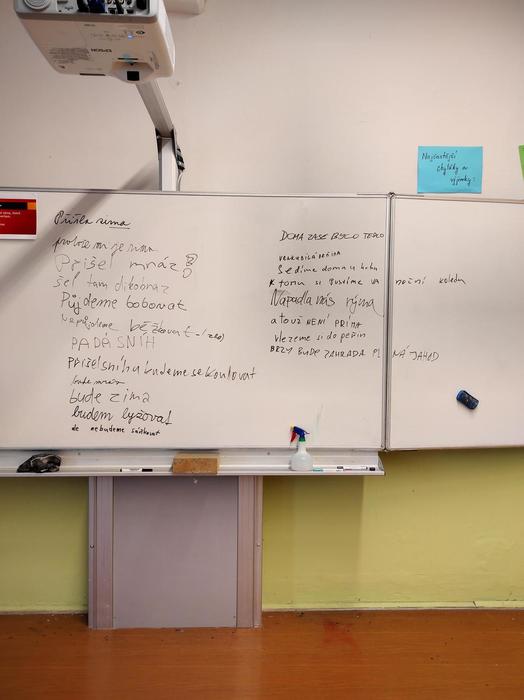 EPSON
Nejčastější
chytáky a
výjimky
Přišla zima
protože mi je zima
Přišel mráz
šel tam dikobraz
Půjdeme bobovat
Nepůjdeme běžkovat
PADÁ SNÍH
Přišel sníh a budeme se koulovat
bude mráz
bude zima
budem lyžovat
ale nebudeme sáňkovat
DOMA ZASE BYLO TEPLO
Sedíme doma u krbu
K tomu si pustíme vánoční koledu
Napadla nás rýma
a to už NENÍ PRIMA
vlezeme si do peřin
BRZY BUDE ZAHRADA PLNÁ JAHOD